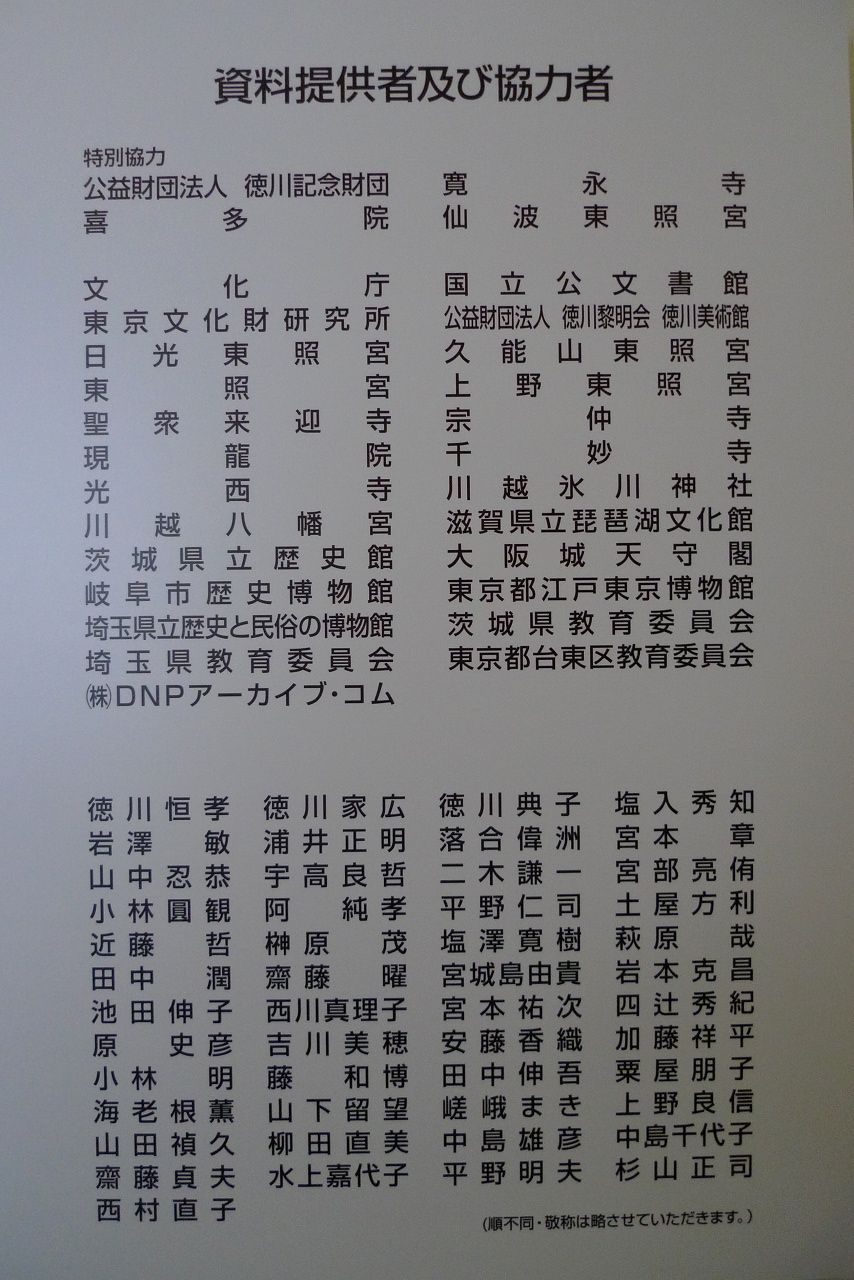 資料提供者及び協力者
特別協力
公益財団法人 徳川記念財団 寛永寺
喜多院 仙波東照宮
文化庁 国立公文書館
東京文化財研究所 公益財団法人 徳川黎明会 徳川美術館
日光東照宮 久能山東照宮
東照宮 上野東照宮
聖衆来迎寺 宗仲寺
現龍院 千妙寺
光西寺 川越氷川神社
川越八幡宮 滋賀県立琵琶湖文化館
茨城県立歴史館 大阪城天守閣
岐阜市歴史博物館 東京都江戸東京博物館
埼玉県立歴史と民俗の博物館 茨城県教育委員会
埼玉県教育委員会 東京都台東区教育委員会
㈱DNPアーカイブ・コム
徳川恒孝 徳川家広 徳川典子 塩入秀知
岩澤敏 浦井正明 落合偉洲 宮本章
山中忍恭 宇高良哲 二木謙一 宮部亮侑
小林圓観 阿純孝 平野仁司 土屋方利
近藤哲 榊原茂 塩澤寛樹 萩原哉
田中潤 齋藤曜 宮城島由貴 岩本克昌
池田伸子 西川真理子 宮本祐次 四辻秀紀
原史彦 吉川美穂 安藤香織 加藤祥平
小林明 藤和博 田中伸吾 粟屋朋子
海老根薫 山下留望 嵯峨まき 上野良信
山田禎久 柳田直美 中島雄彦 中島千代子
齋藤貞夫 水上嘉代子 平野明夫 杉山正司
西村直子
(順不同・敬称は略させていただきます。)